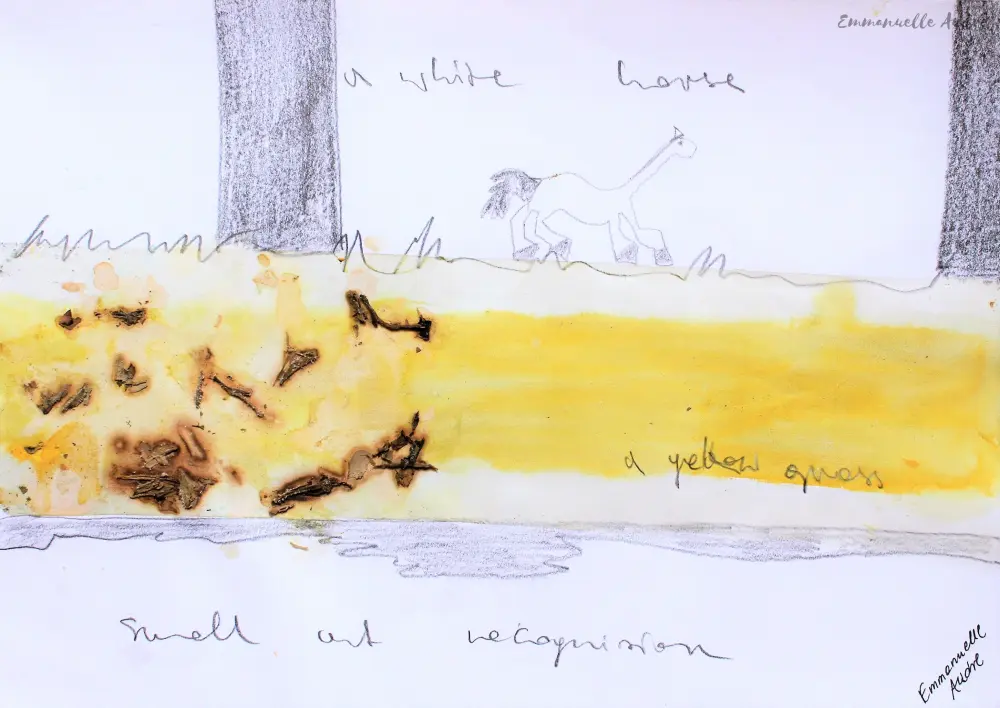 Emmanuelle
a white horse
a yellow grass
Smell art recognision
Emmanuelle
André